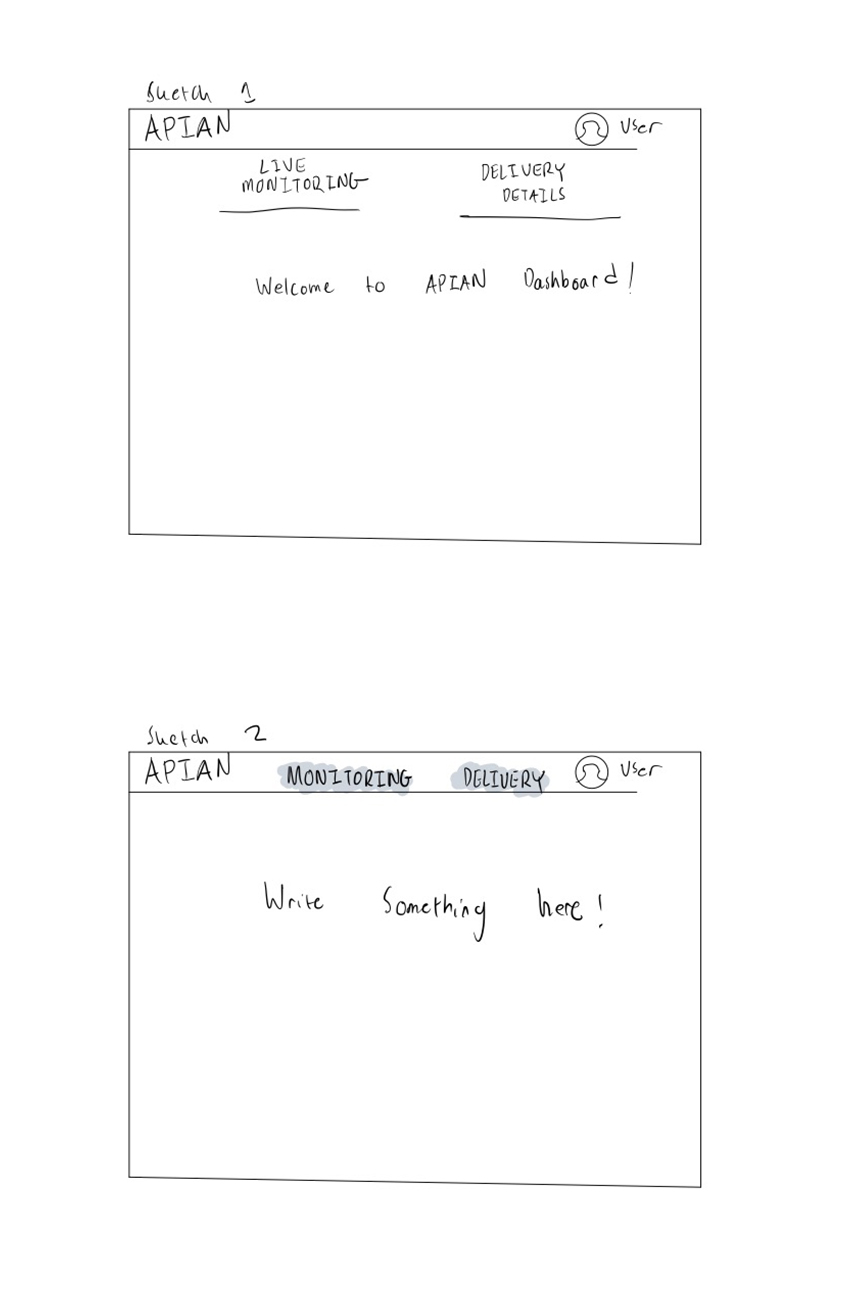 Sketch 1
APIAN User
LIVE
MONITORING
DELIVERY
DETAILS
Welcome to APIAN Dashboard!
Sketch 2
APIAN MONITORING DELIVERY User
Write Something here!